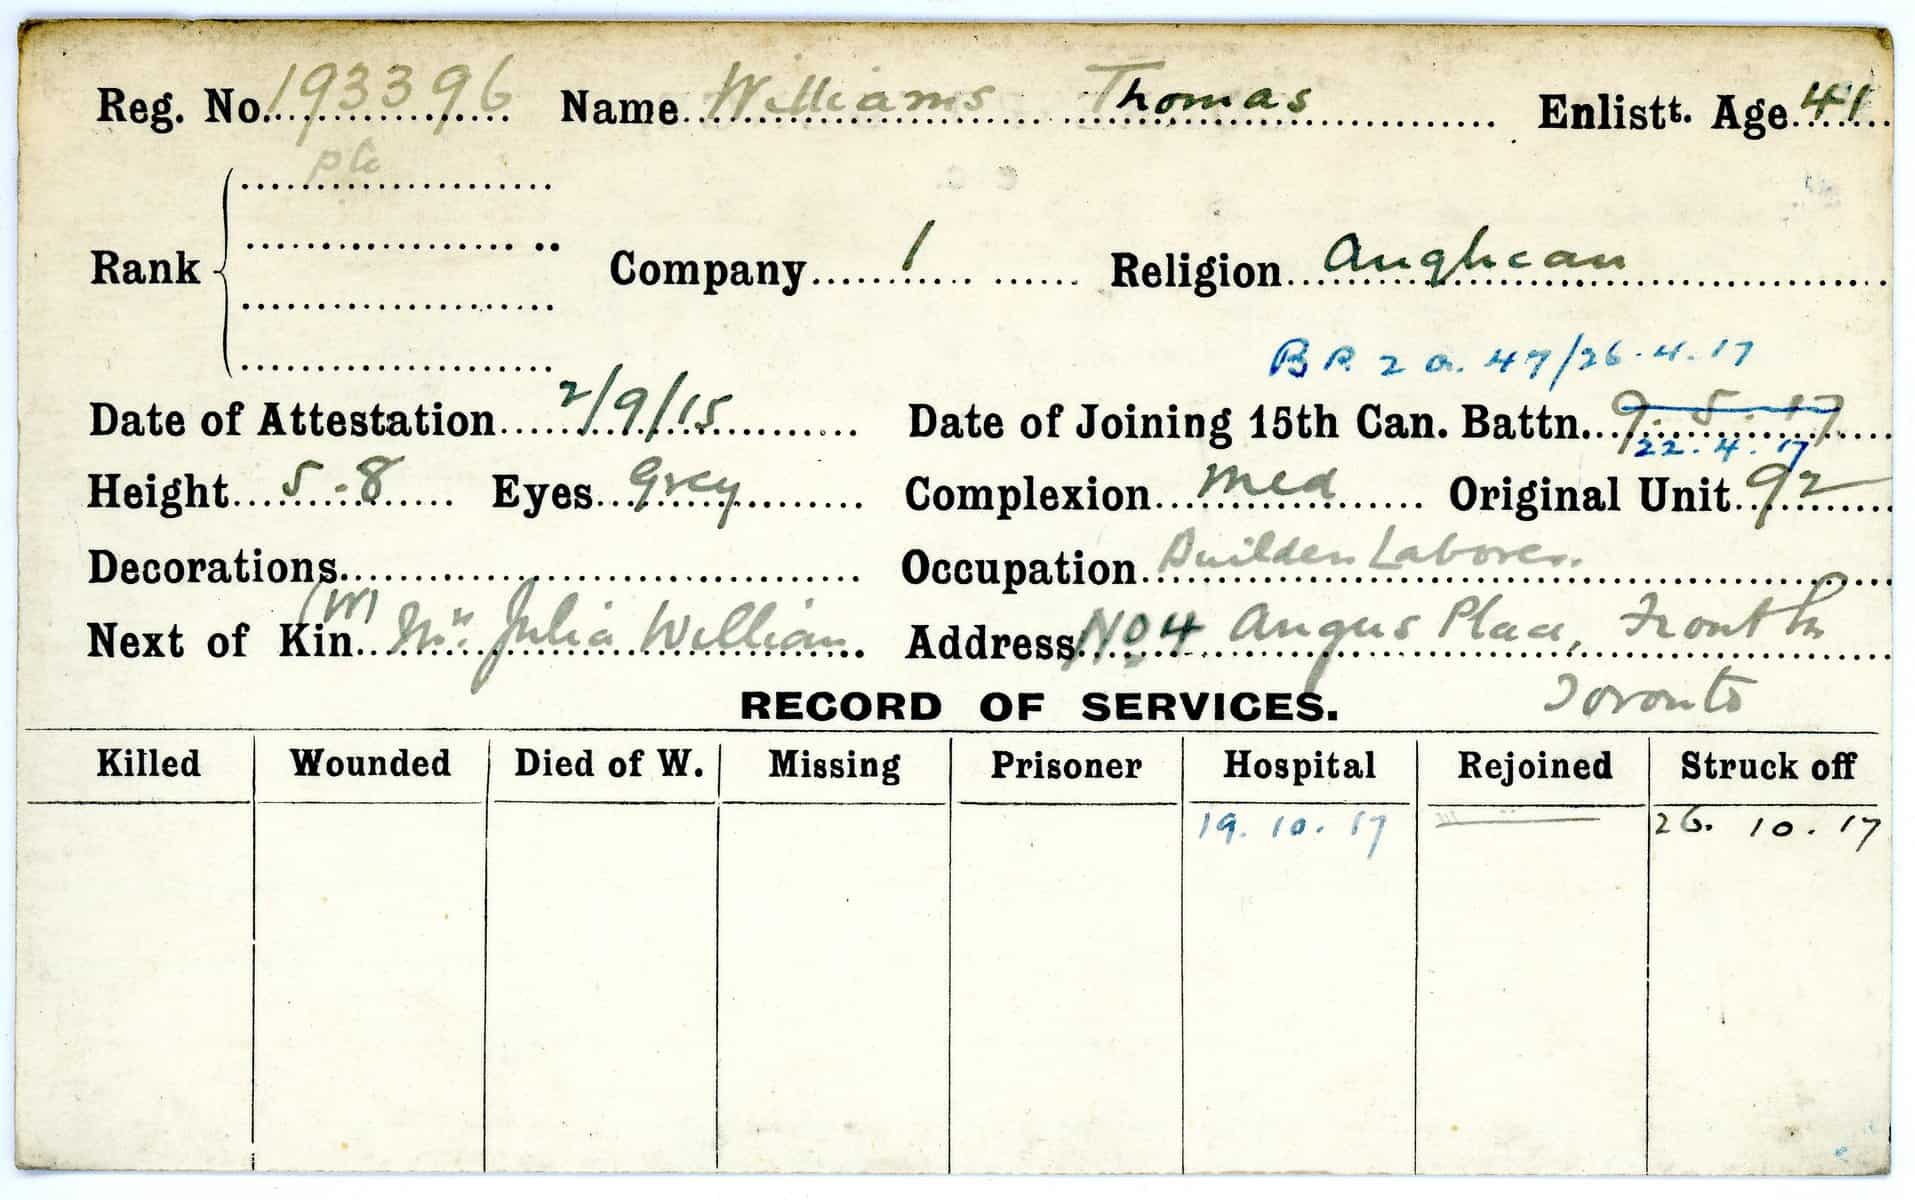 Reg. No. 193396 Name Williams Thomas Enlistt. Age 41
Pte
Rank Company 1 Religion Anglican
B R 2 a. 47/26.4.17
Date of Attestation 2/9/15 Date of Joining 15th Can. Battn. 9.5.17
22.4.17
Height 5.8 Eyes Grey Complexion Med Original Unit 92
Decorations Occupation Builders Laborer.
(W)
Next of Kin Mrs Julia William Address No 4 Angus Place, Front
Toronto
RECORD OF SERVICES.
Killed Wounded Died of W. Missing Prisoner Hospital Rejoined Struck off
19.10.17 26.10.17